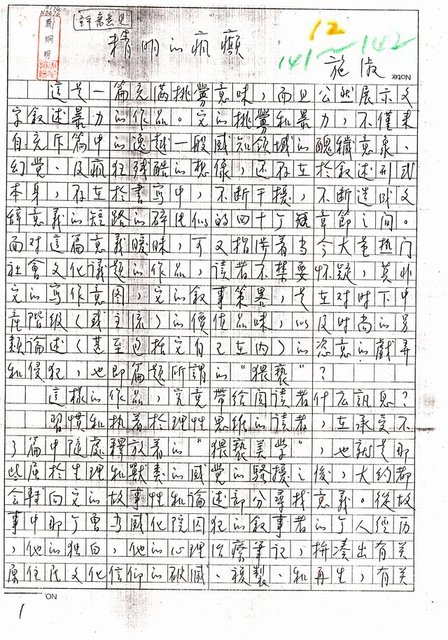 評審意見
12
141～142
精明的瘋癲
施淑
這是一篇充滿挑釁意味，而且公然展示文
字敘述暴力的作品。它的挑釁和暴力，不僅來
自充斥篇中的逸越一般感知領域的醜穢意象、
幻覺、及瘋狂殘酷的想像，還存在於敘述形式
本身，存在於書寫中，不斷干擾，不斷造成文
緒意義的短路的碎片似的四十個短章節之間。
面對這篇意義曖昧，可又指涉着當今大量熱门
社會文化議題的作品，讀者不禁要怀疑，莫非
它的寫作意圖，它的敘事策略，是在对时下中
產階級（或主流）的價值品味，以及时尚的另
類論述（甚至包括它自己在内）的恣意的戲弄
和侵犯，也即篇題所謂的"猥褻"？
這樣的作品，究竟帶給閱讀者什么訊息？
習慣和執着於理性思維的讀者，在承受不
了篇中隨處釋放着的"猥褻美学"，也就是那
些屬於生理和獸素的感覺的騷擾之後，大約都
會轉向它的故事性和論述部分尋找意義。從故
事中那个曾为感化院囚犯的敘事者的个人經历
，他的独白，他的心理治療筆記，拼凑出有关
原住民文化信仰的破滅、複製、和再生，有关
NO.
1